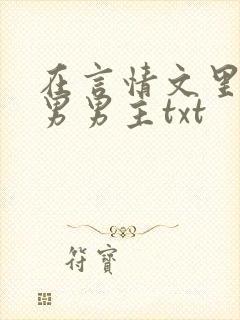 在言情文里
男男主txt
符寶